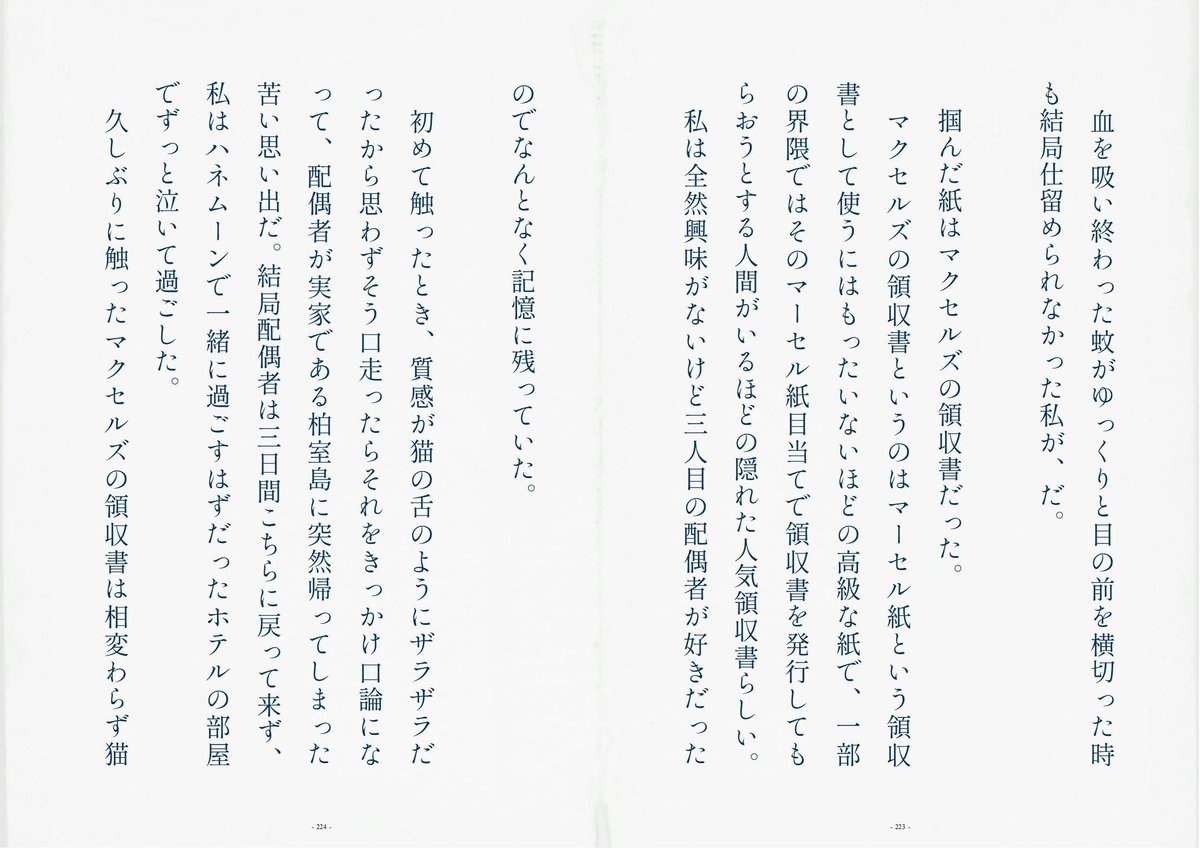 血を吸い終わった蚊がゆっくりと目の前を横切った時
も結局仕留められなかった私が、だ。
掴んだ紙はマクセルズの領収書だった。
マクセルズの領収書というのはマーセル紙という領収
書として使うにはもったいないほどの高級な紙で、一部
の界隈ではそのマーセル紙目当てで領収書を発行しても
らおうとする人間がいるほどの隠れた人気領収書らしい。
私は全然興味がないけど三人目の配偶者が好きだった
- 223 -
のでなんとなく記憶に残っていた。
初めて触ったとき、質感が猫の舌のようにザラザラだ
ったから思わずそう口走ったらそれをきっかけ口論にな
って、配偶者が実家である柏室島に突然帰ってしまった
苦い思い出だ。結局配偶者は三日間こちらに戻って来ず、
私はハネムーンで一緒に過ごすはずだったホテルの部屋
でずっと泣いて過ごした。
久しぶりに触ったマクセルズの領収書は相変わらず猫
- 224 -